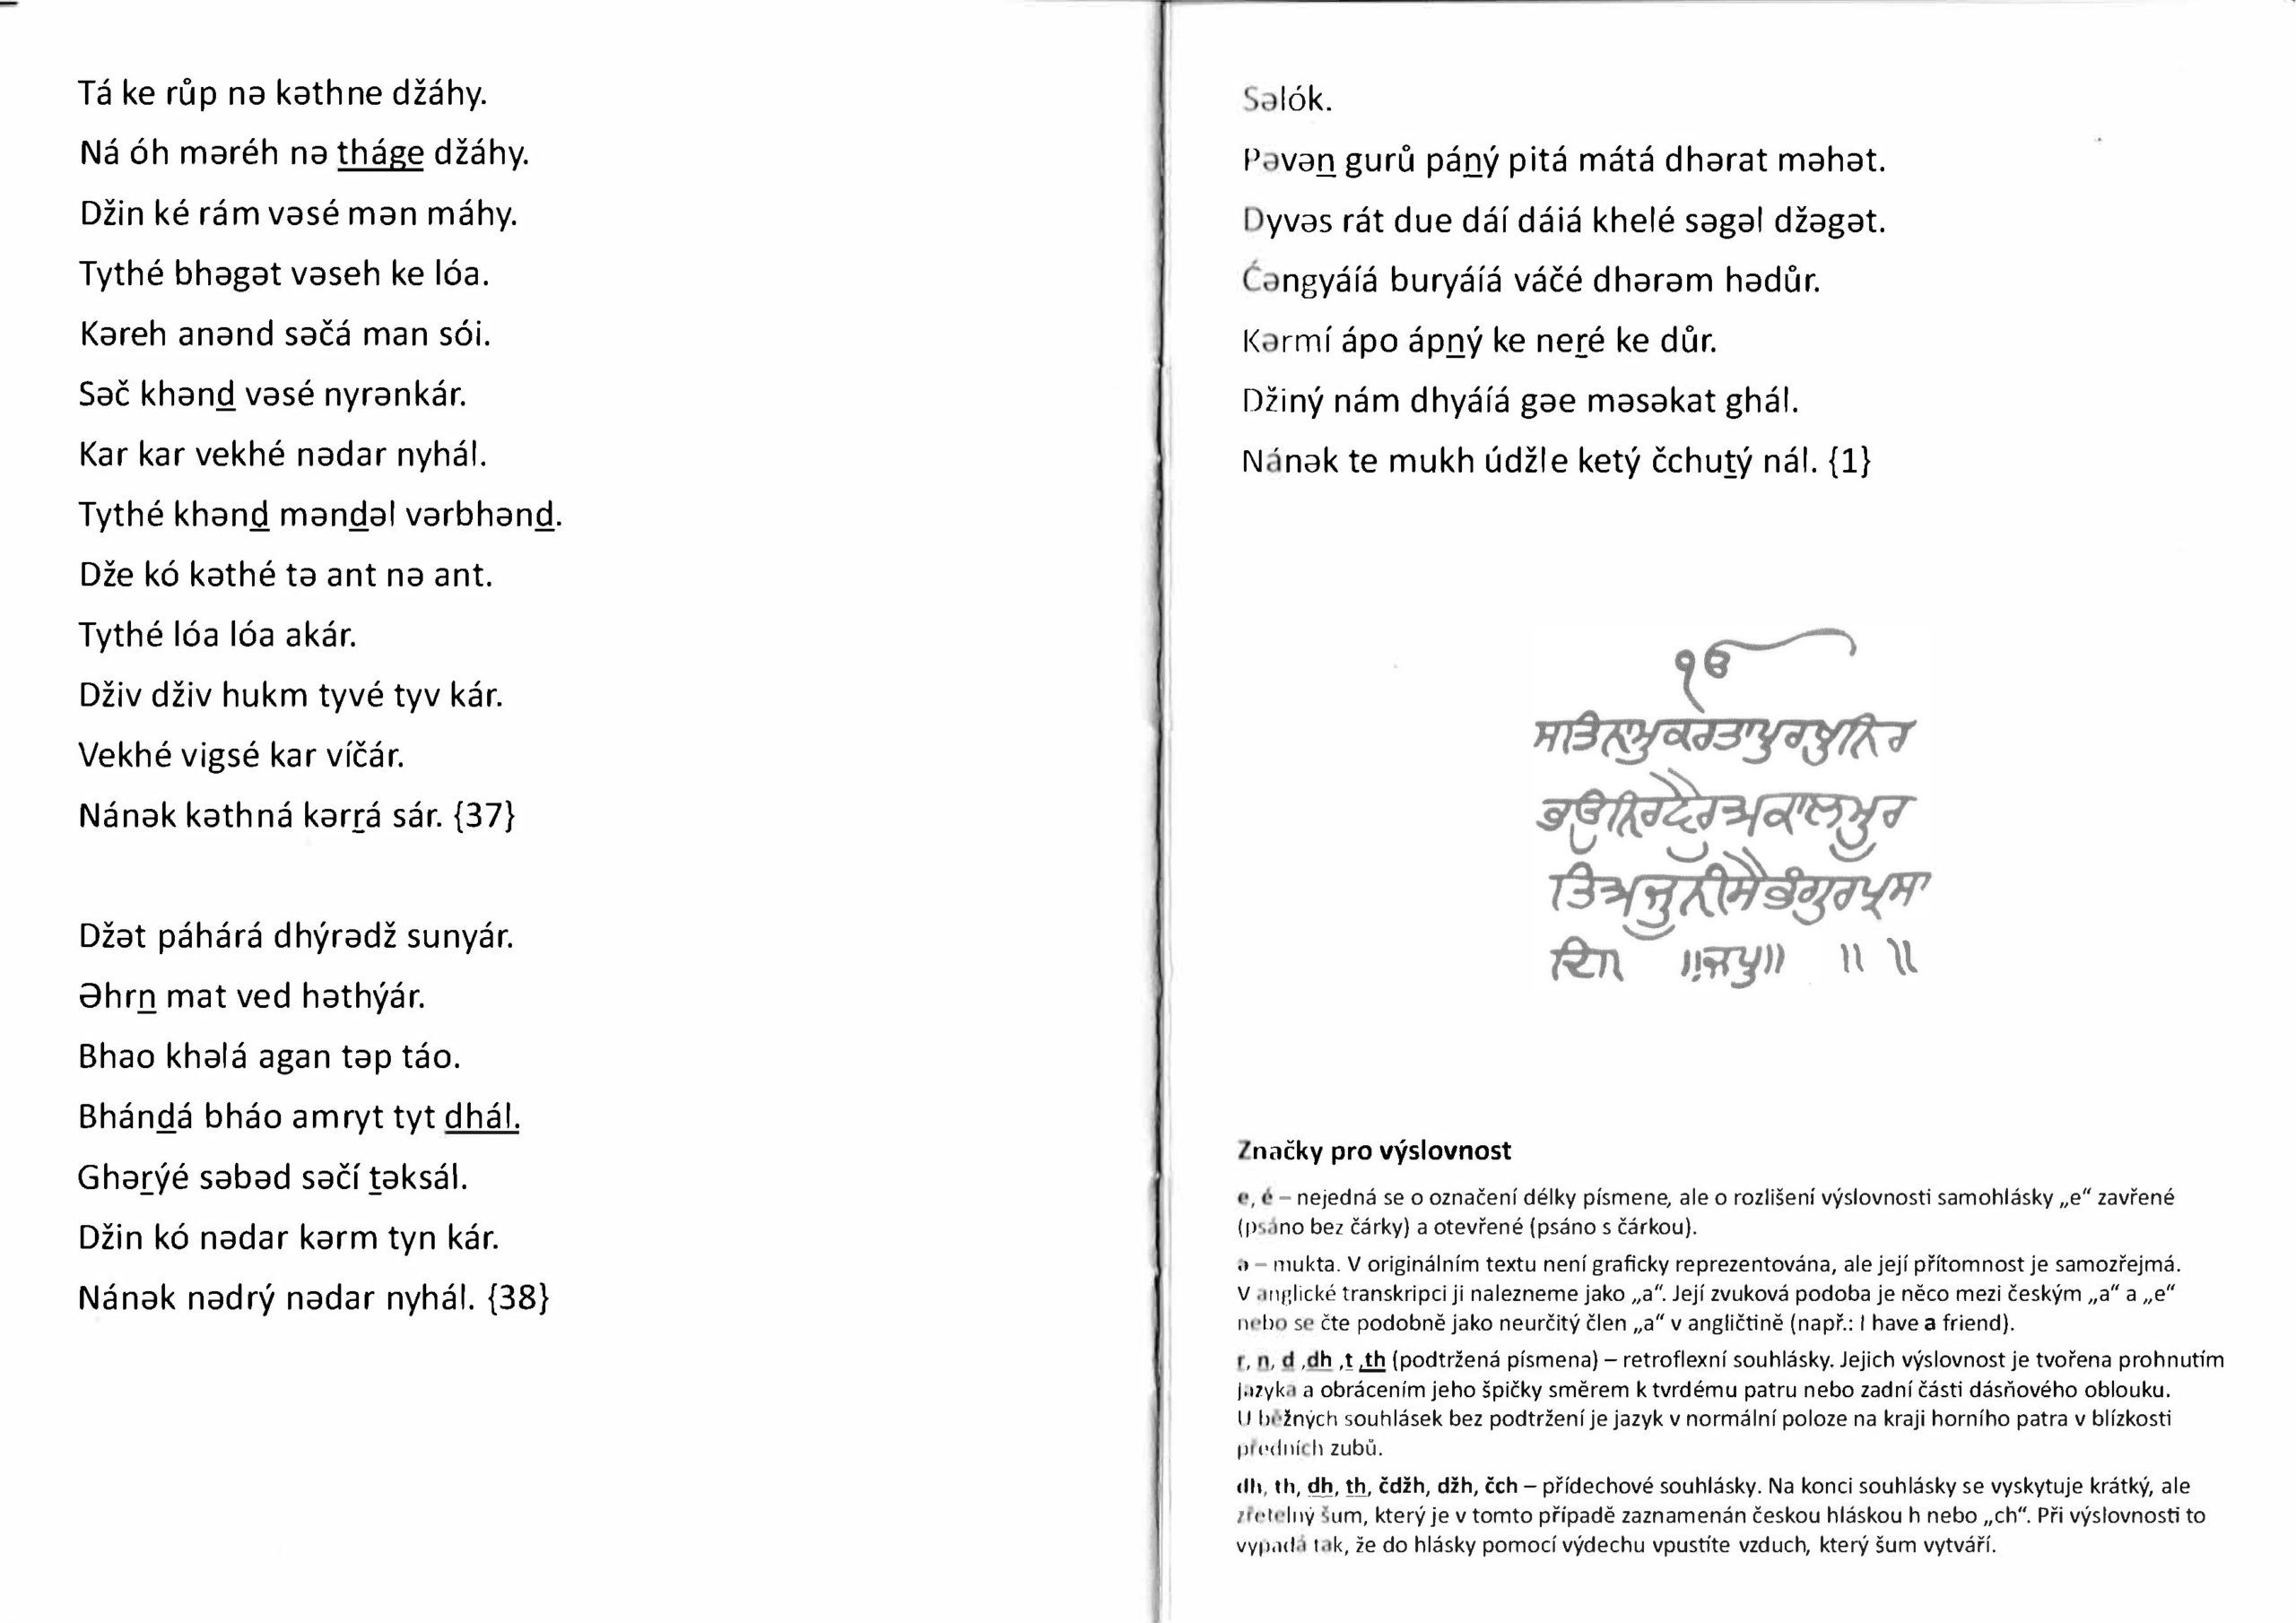 Tá ke růp nə kəthne džáhy.
Ná óh məréh nə tháge džáhy.
Džin ké rám vəsé mən máhy.
Tythé bhəgət vəseh ke lóa.
Kəreh anənd səčá man sói.
Səč khənd vəsé nyrənkár.
Kar kar vekhé nədar nyhál.
Tythé khənd məndəl vərbhənd.
Dže kó kəthé tə ant nə ant.
Tythé lóa lóa akár.
Dživ dživ hukm tyvé tyv kár.
Vekhé vigsé kar víčár.
Nánək kəthná kərrá sár. {37}
Džət páhárá dhýrədž sunyár.
Əhrn mat ved həthýár.
Bhao khəlá agan təp táo.
Bhándá bháo amryt tyt dhál.
Ghərýé səbəd səčí təksál.
Džin kó nədar kərm tyn kár.
Nánək nədrý nədar nyhál. {38}
Səlók.
Pəvən gurů páný pitá mátá dhərat məhət.
Dyvəs rát due dáí dáiá khelé səgəl džəgət.
Ćəngyáíá buryáíá váčé dhərəm hədůr.
Kərmí ápo ápný ke neré ke důr.
Džiný nám dhyáíá gəe məsəkat ghál.
Nánək te mukh údžle ketý čchutý nál. {1}
ੴ
ਸਤਿਨਾਮੁਕਰਤਾਪੁਰਖੁਨਿਰ
ਭਉਨਿਰਵੈਰੁਅਕਾਲਮੂਰ
ਤਿਅਜੂਨੀਸੈਭੰਗੁਰਪ੍ਰਸਾ
ਦਿ ॥ਜਪੁ॥ ॥ ॥
Značky pro výslovnost
e, é – nejedná se o označení délky písmene, ale o rozlišení výslovnosti samohlásky „e“ zavřené
(psáno bez čárky) a otevřené (psáno s čárkou).
ə – mukta. V originálním textu není graficky reprezentována, ale její přítomnost je samozřejmá.
V anglické transkripci ji nalezneme jako „a“. Její zvuková podoba je něco mezi českým „a“ a „e“
nebo se čte podobně jako neurčitý člen „a“ v angličtině (např.: I have a friend).
r, n, d ,dh ,t ,th (podtržená písmena) – retroflexní souhlásky. Jejich výslovnost je tvořena prohnutím
jazyka a obrácením jeho špičky směrem k tvrdému patru nebo zadní části dásňového oblouku.
U běžných souhlásek bez podtržení je jazyk v normální poloze na kraji horního patra v blízkosti
předních zubů.
dh, th, dh, th, čdžh, džh, čch – přídechové souhlásky. Na konci souhlásky se vyskytuje krátký, ale
zřetelný šum, který je v tomto případě zaznamenán českou hláskou h nebo „ch“. Při výslovnosti to
vypadá tak, že do hlásky pomocí výdechu vpustíte vzduch, který šum vytváří.